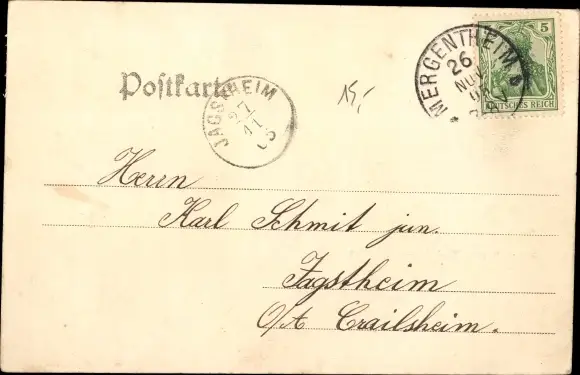 MERGENTHEIM
26
NOV
5
DEUTSCHES REICH
Postkarte
JAGSTHEIM
27
11
15,-
Herrn
Karl Schmit jun.
Jagstheim
O/A Crailsheim.